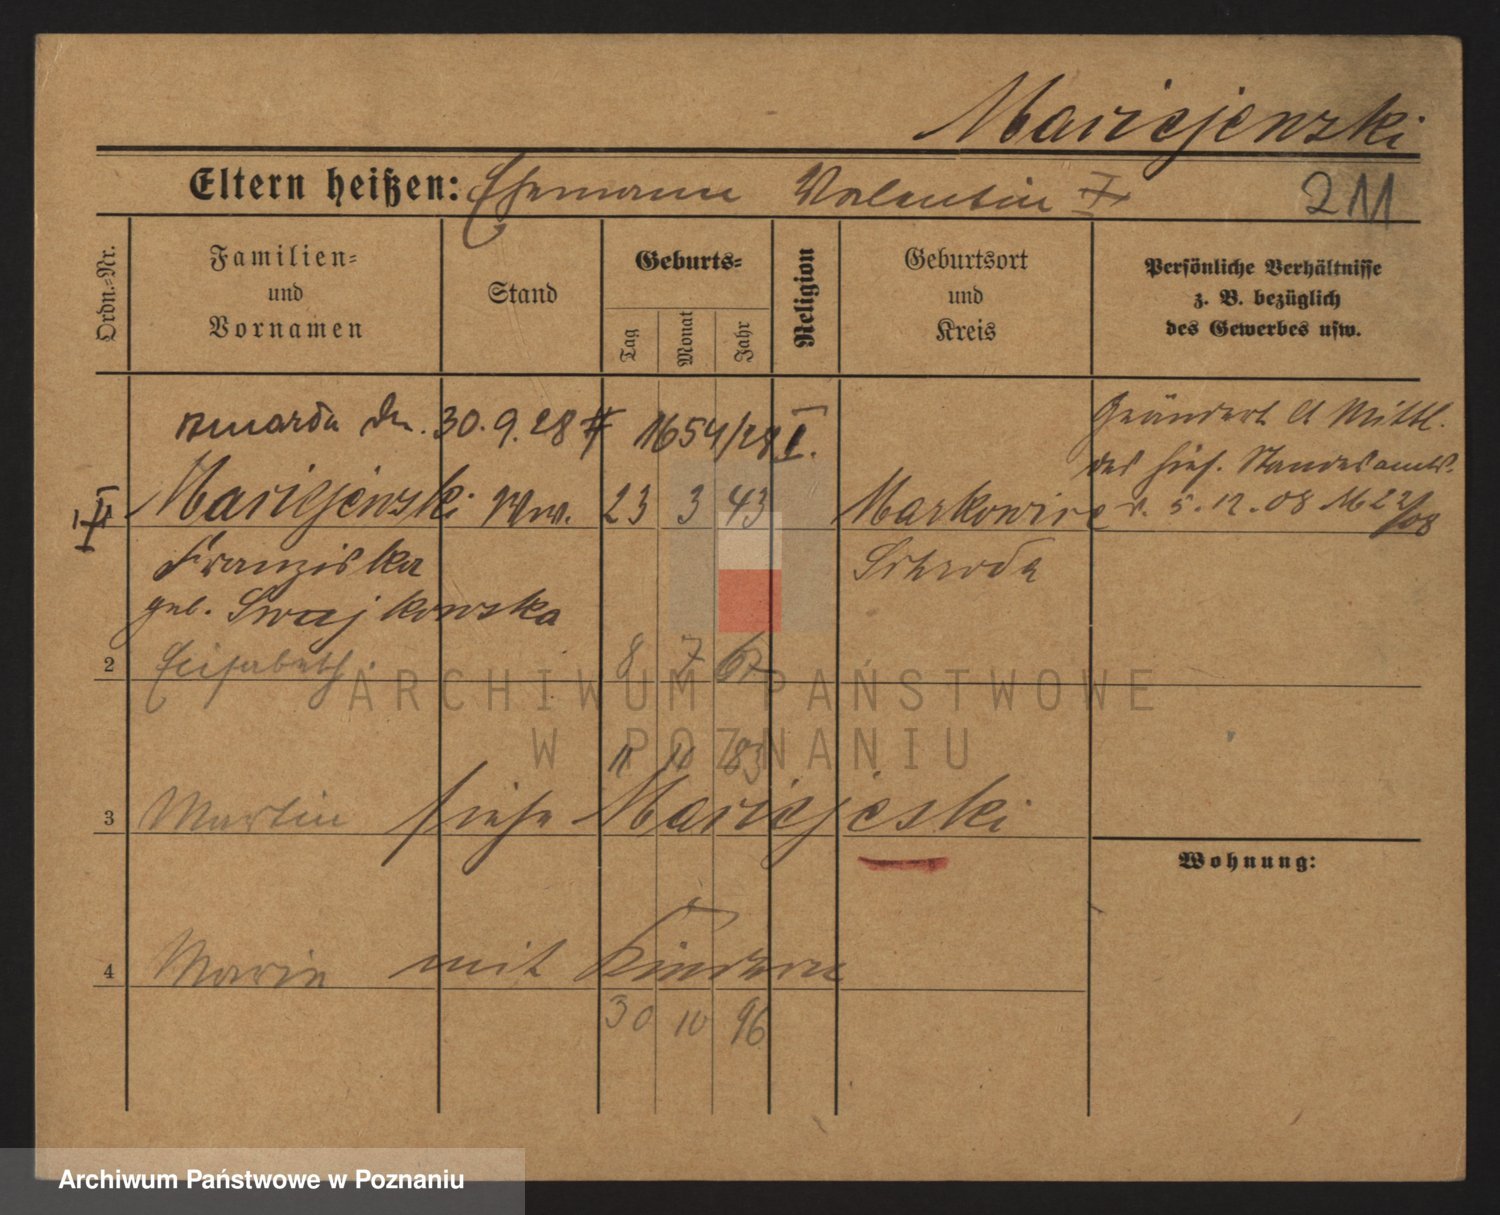 Maciejewski
Eltern heißen: Ehemann Valentin
211
Ordn.-Nr.
Familien-
und
Vornamen
Stand
Geburts-
Tag
Monat
Jahr
Religion
Geburtsort
und
Kreis
Persönliche Verhältnisse
z. B. bezüglich
des Gewerbes usw.
zmarła dn. 30.9.28 # 1654/28 I.
Geändert lt Mittl.
des hies. Standesamts.
v. 5.12.08 M 22/08
1 Maciejewski Ww. 23 3 43 Markowice
Franziska Schroda
geb. Swajkowska
2 Elisabeth 8 7 67
11 11 83
3 Martin siehe Maciejeski
Wohnung:
4 Marie mit Kindern
30 10 96
ARCHIWUM PAŃSTWOWE
W POZNANIU
Archiwum Państwowe w Poznaniu